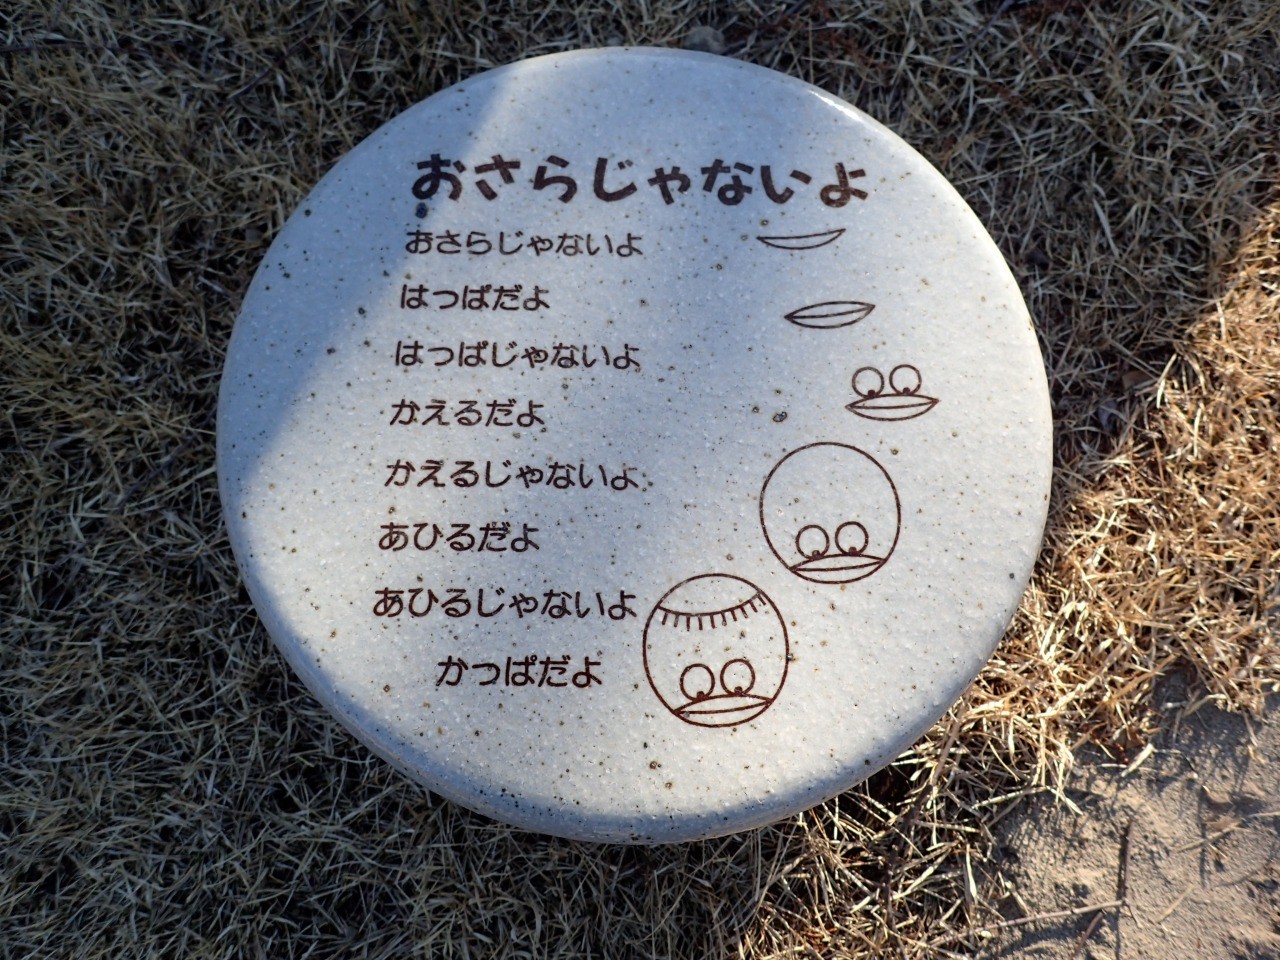 おさらじゃないよ
おさらじゃないよ
はっぱだよ
はっぱじゃないよ
かえるだよ
かえるじゃないよ
あひるだよ
あひるじゃないよ
かっぱだよ